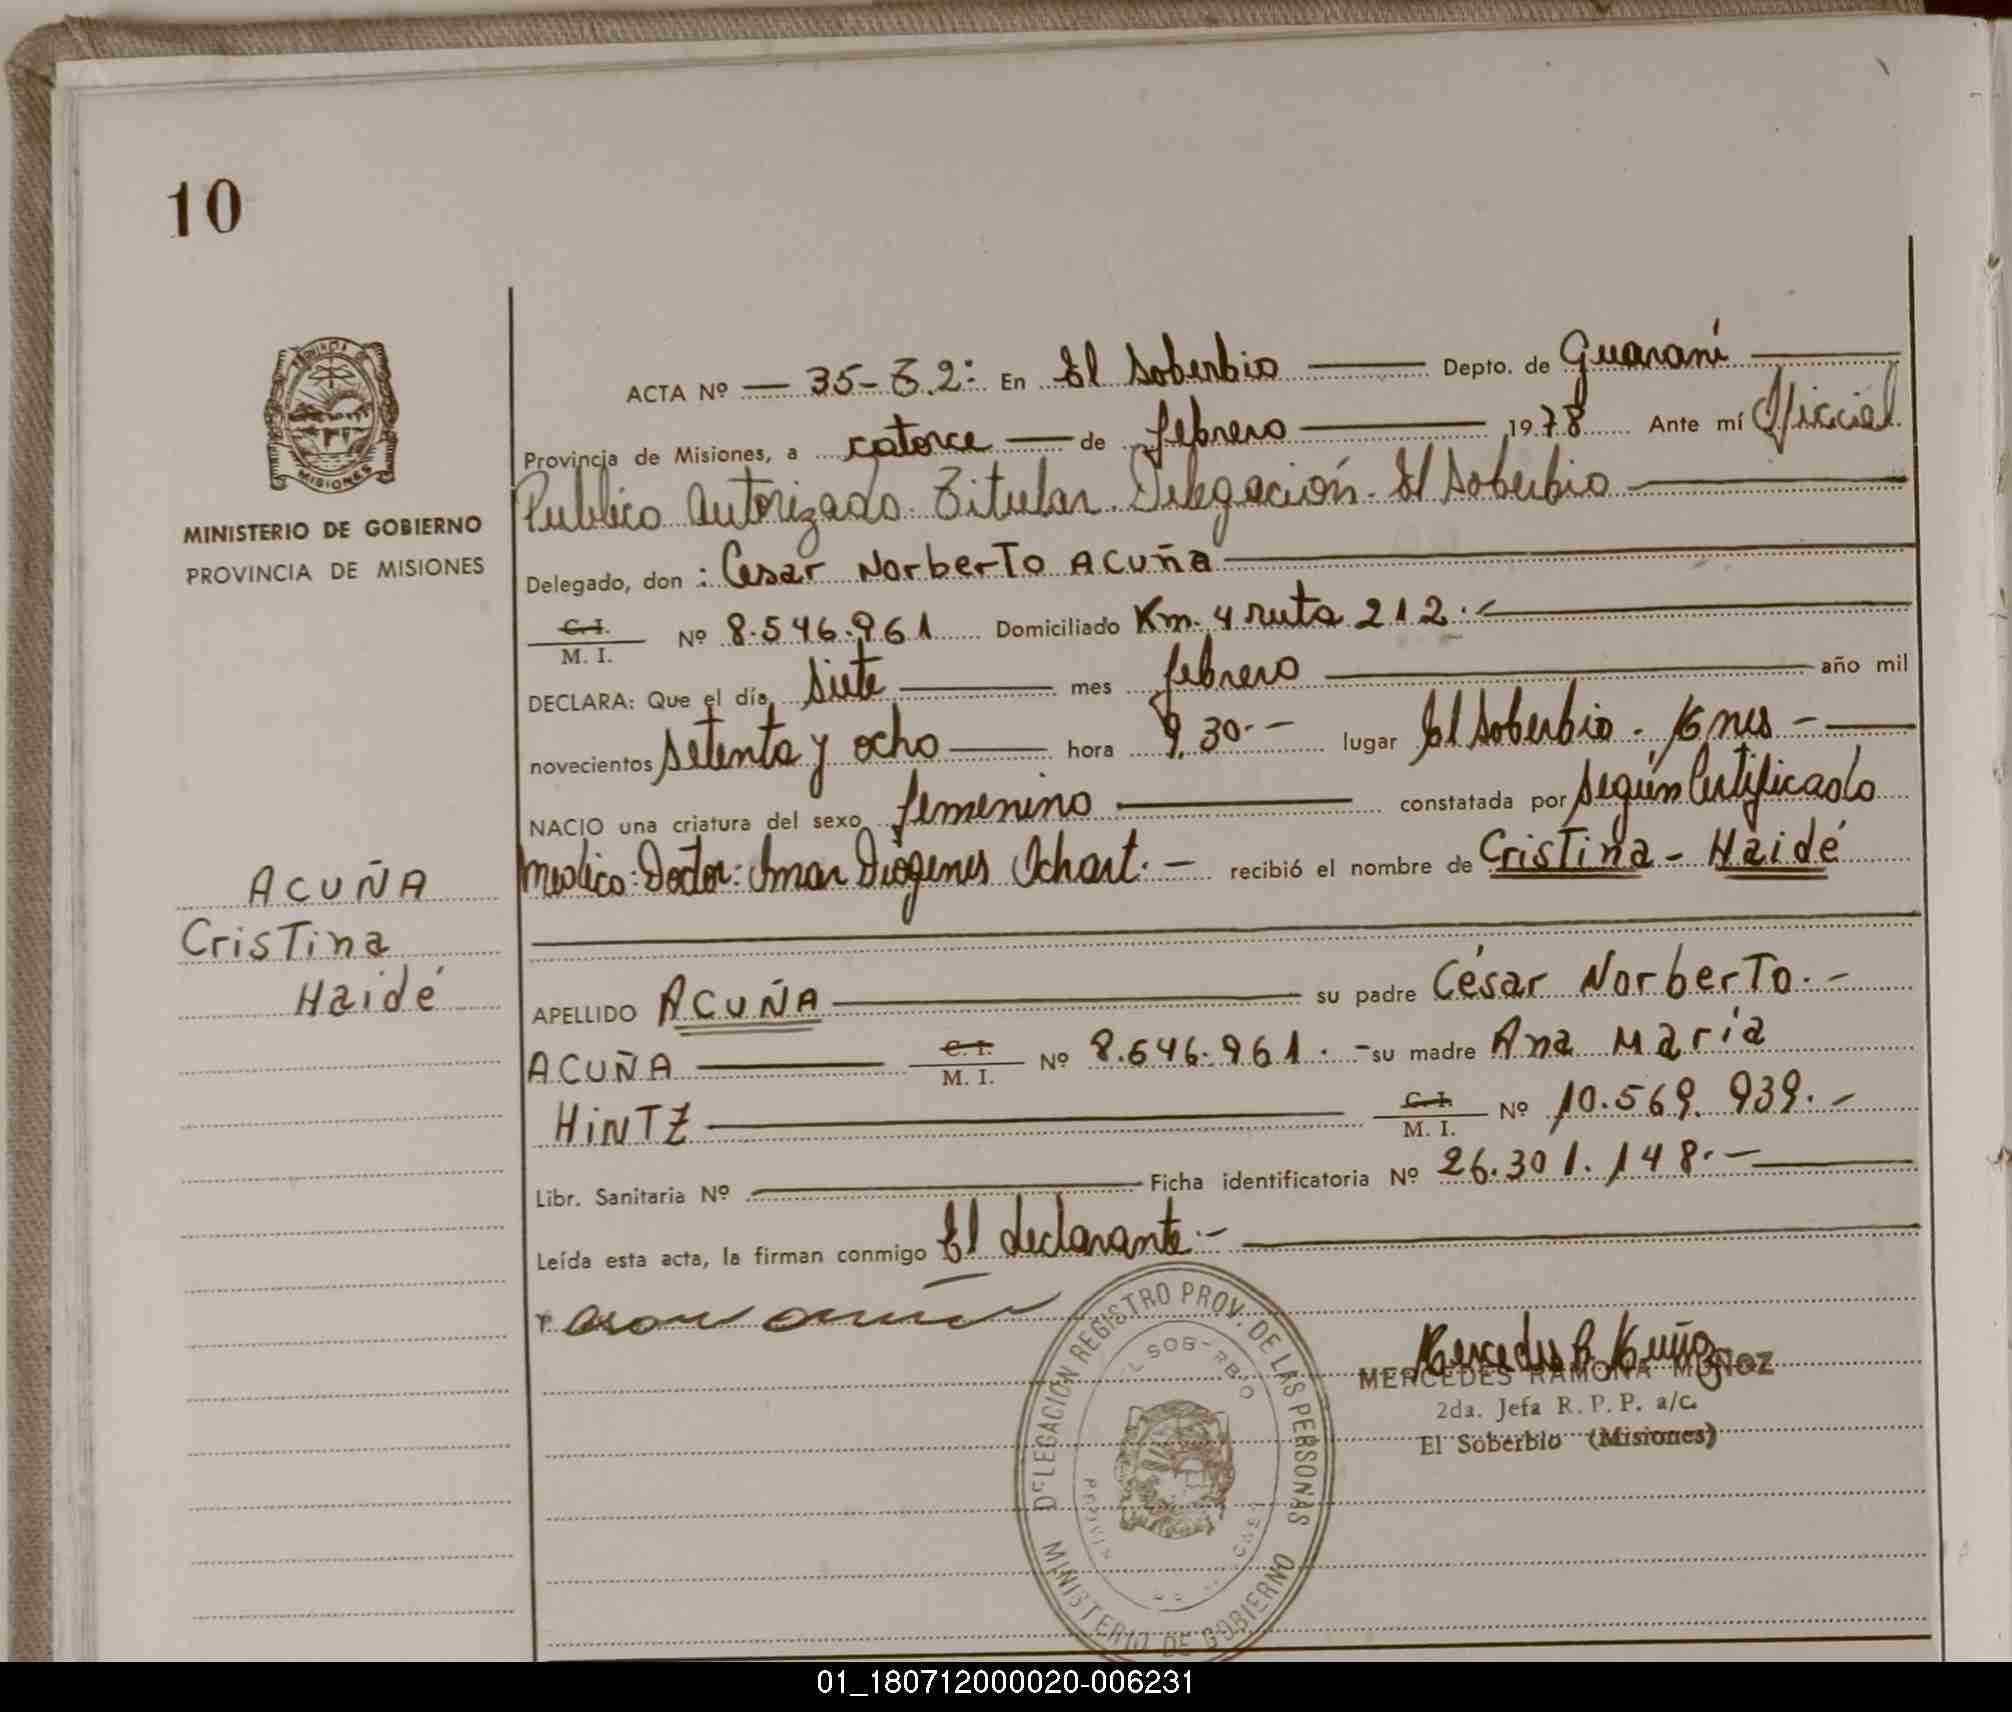 10
MINISTERIO DE GOBIERNO
PROVINCIA DE MISIONES
ACUÑA
Cristina
Haidé
ACTA Nº — 35 - T. 2: En El Soberbio — Depto. de Guaraní —
Provincia de Misiones, a catorce — de febrero — 1978 Ante mí Oficial
Publico Autorizado. Titular. Delegación. El Soberbio —
Delegado, don : Cesar Norberto Acuña —
C. I. / M. I. Nº 8.546.961 Domiciliado Km. 4 ruta 212.- —
DECLARA: Que el día siete — mes febrero — año mil
novecientos setenta y ocho — hora 9,30.-- lugar El Soberbio. Mnes - —
NACIO una criatura del sexo femenino — constatada por según Certificado
medico: Doctor: Omar Diógenes Ichart. — recibió el nombre de Cristina - Haidé
APELLIDO ACUÑA — su padre César Norberto. -
ACUÑA — C. I. / M. I. Nº 8.546.961. - su madre Ana María
HINTZ — C. I. / M. I. Nº 10.569.939. -
Libr. Sanitaria Nº — Ficha identificatoria Nº 26.301.148.- —
Leída esta acta, la firman conmigo El declarante.- —
DELEGACION REGISTRO PROV. DE LAS PERSONAS
MINISTERIO DE GOBIERNO
Mercedes R Muñoz
MERCEDES RAMONA MUÑOZ
2da. Jefa R. P. P. a/c.
El Soberbio (Misiones)
01_180712000020-006231